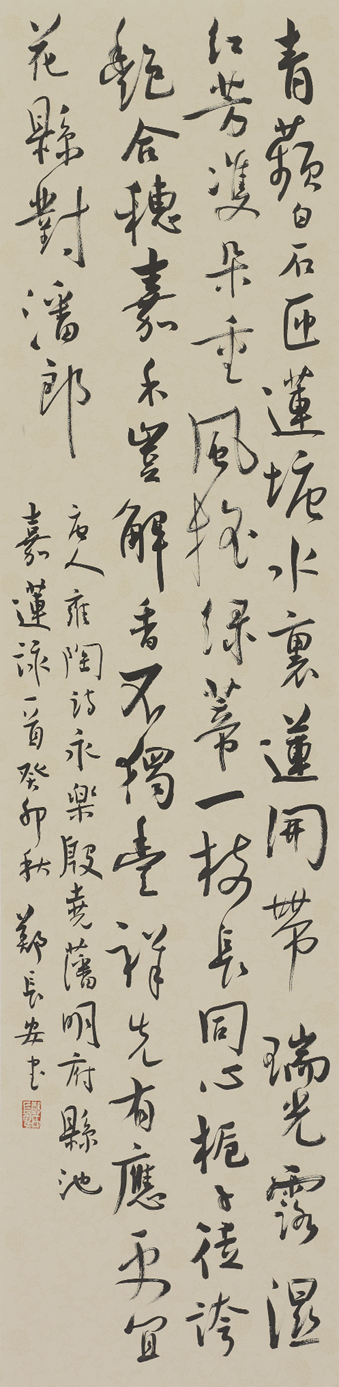 青蘋白石匝蓮塘水裏蓮開帶瑞光露濕
紅芳雙朵重風搖綠蒂一枝長同心梔子徒誇
艷合穗嘉禾豈解香不獨豐祥先有應更宜
花縣對潘郎
唐人雍陶詩永樂殷堯藩明府縣池
嘉蓮詠一首癸卯秋 鄭長安书